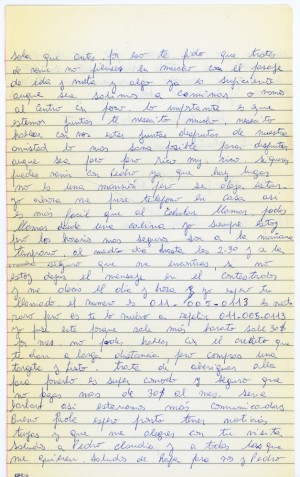 sola que antes, por eso te pido que trates
de venir no pienses en mucho con el pasaje
de ida y vuelta y algo ya es suficiente
aunque sea salimos a caminar, o vamos
al Centro es poco lo importante es que
estemos juntas te necesito mucho, necesito
hablar con vos estar juntas disfrutar de nuestra
amistad lo mas sano posible para disfrutar
aunque sea poco pero rico muy rico. Si queres
podes venir con Pedro ya que hay lugar
no es una mansión pero se puede estar.
yo ahora me puse telefono en Casa asi
es más facil que al Celular llamar, podes
llamar desde una cabina yo siempre estoy
en los horarios mas seguros son a la mañana
temprano al medio dia hasta las 2:30 y a la
seguro que me encontras, si no
estoy dejas el mensaje en el contestador
y me decis el dia y hora y yo espero tu
llamado el numero es 011-005-0113 es medio
raro pero es te lo vuelvo a repetir 011-005-0113
y puse este porque sale más barato sale 30$
por mes. no podes hablar con el credito que
te dan a larga distancia pero compras una
tarjeta y listo, trata de averiguar alla
para ponerlo es super comodo y seguro que
no pagas mas de 30$ al mes, sería
barbaro asi estariamos más comunicadas.
Bueno espero pronto tener noticias
tuyas y que me alegres con tu visita.
saludos a Pedro claudia y a todos los que
me quieren. saludos de para vos y Pedro